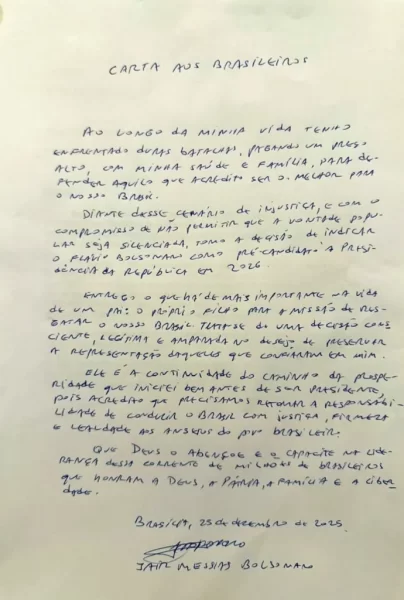 CARTA AOS BRASILEIROS
AO LONGO DA MINHA VIDA TENHO
ENFRENTADO DURAS BATALHAS, PAGANDO UM PREÇO
ALTO, COM MINHA SAÚDE E FAMÍLIA, PARA DE-
FENDER AQUILO QUE ACREDITO SER O MELHOR PARA
O NOSSO BRASIL.
DIANTE DESSE CENÁRIO DE INJUSTIÇA, E COM O
COMPROMISSO DE NÃO PERMITIR QUE A VONTADE POPU-
LAR SEJA SILENCIADA, TOMO A DECISÃO DE INDICAR
O FLÁVIO BOLSONARO COMO PRÉ-CANDIDATO À PRESI-
DÊNCIA DA REPÚBLICA EM 2026.
ENTREGO O QUE HÁ DE MAIS IMPORTANTE NA VIDA
DE UM PAI: O PRÓPRIO FILHO PARA A MISSÃO DE RES-
GATAR O NOSSO BRASIL. TRATA-SE DE UMA DECISÃO CONS
CIENTE, LEGÍTIMA E AMPARADA NO DESEJO DE PRESERVAR
A REPRESENTAÇÃO DAQUELES QUE CONFIARAM EM MIM.
ELE É A CONTINUIDADE DO CAMINHO DA PROSPE-
RIDADE QUE INICIEI BEM ANTES DE SER PRESIDENTE,
POIS ACREDITO QUE PRECISAMOS RETOMAR A RESPONSABI-
LIDADE DE CONDUZIR O BRASIL COM JUSTIÇA, FIRMEZA
E LEALDADE AOS ANSEIOS DO POVO BRASILEIR.
QUE DEUS O ABENÇOE E O CAPACITE NA LIDE-
RANÇA DESSA CORRENTE DE MILHÕES DE BRASILEIROS
QUE HONRAM A DEUS, A PÁTRIA, A FAMÍLIA E A LIBER
DADE.
BRASÍLIA, 25 DE DEZEMBRO DE 2025.
JAIR MESSIAS BOLSONARO